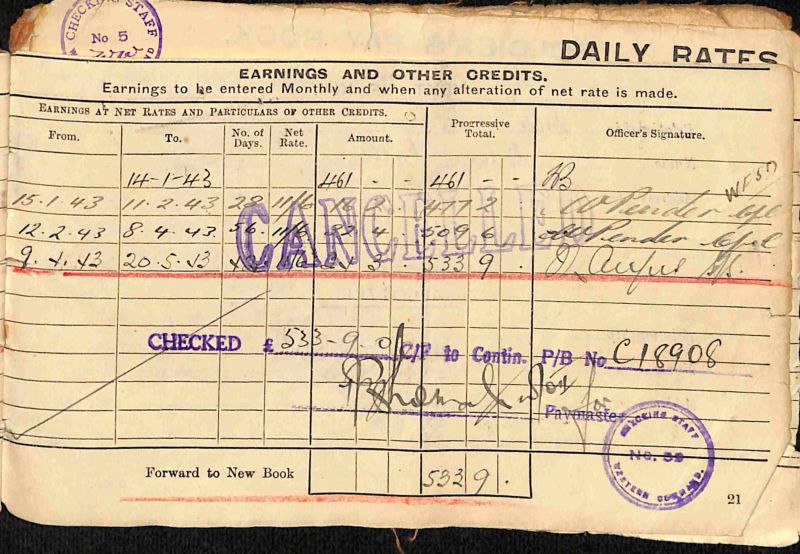 CHECKING STAFF
No 5
DAILY RATES
EARNINGS AND OTHER CREDITS.
Earnings to be entered Monthly and when any alteration of net rate is made.
EARNINGS AT NET RATES AND PARTICULARS OF OTHER CREDITS.
From. To. No. of Days. Net Rate. Amount. Progressive Total. Officer's Signature.
14-1-43 461 - - 461 - -
15.1.43 11.2.43 28 11/6 16 2 477 2
12.2.43 8.4.43 56 11/6 32 4 509 6
9.4.43 20.5.43 42 11/6 24 3 533 9
CANCELLED
CHECKED £ 533-9-0 C/F to Contin. P/B No C18908
Paymaster
CHECKING STAFF
No. 39
WESTERN COMMAND.
Forward to New Book 533 9.
21